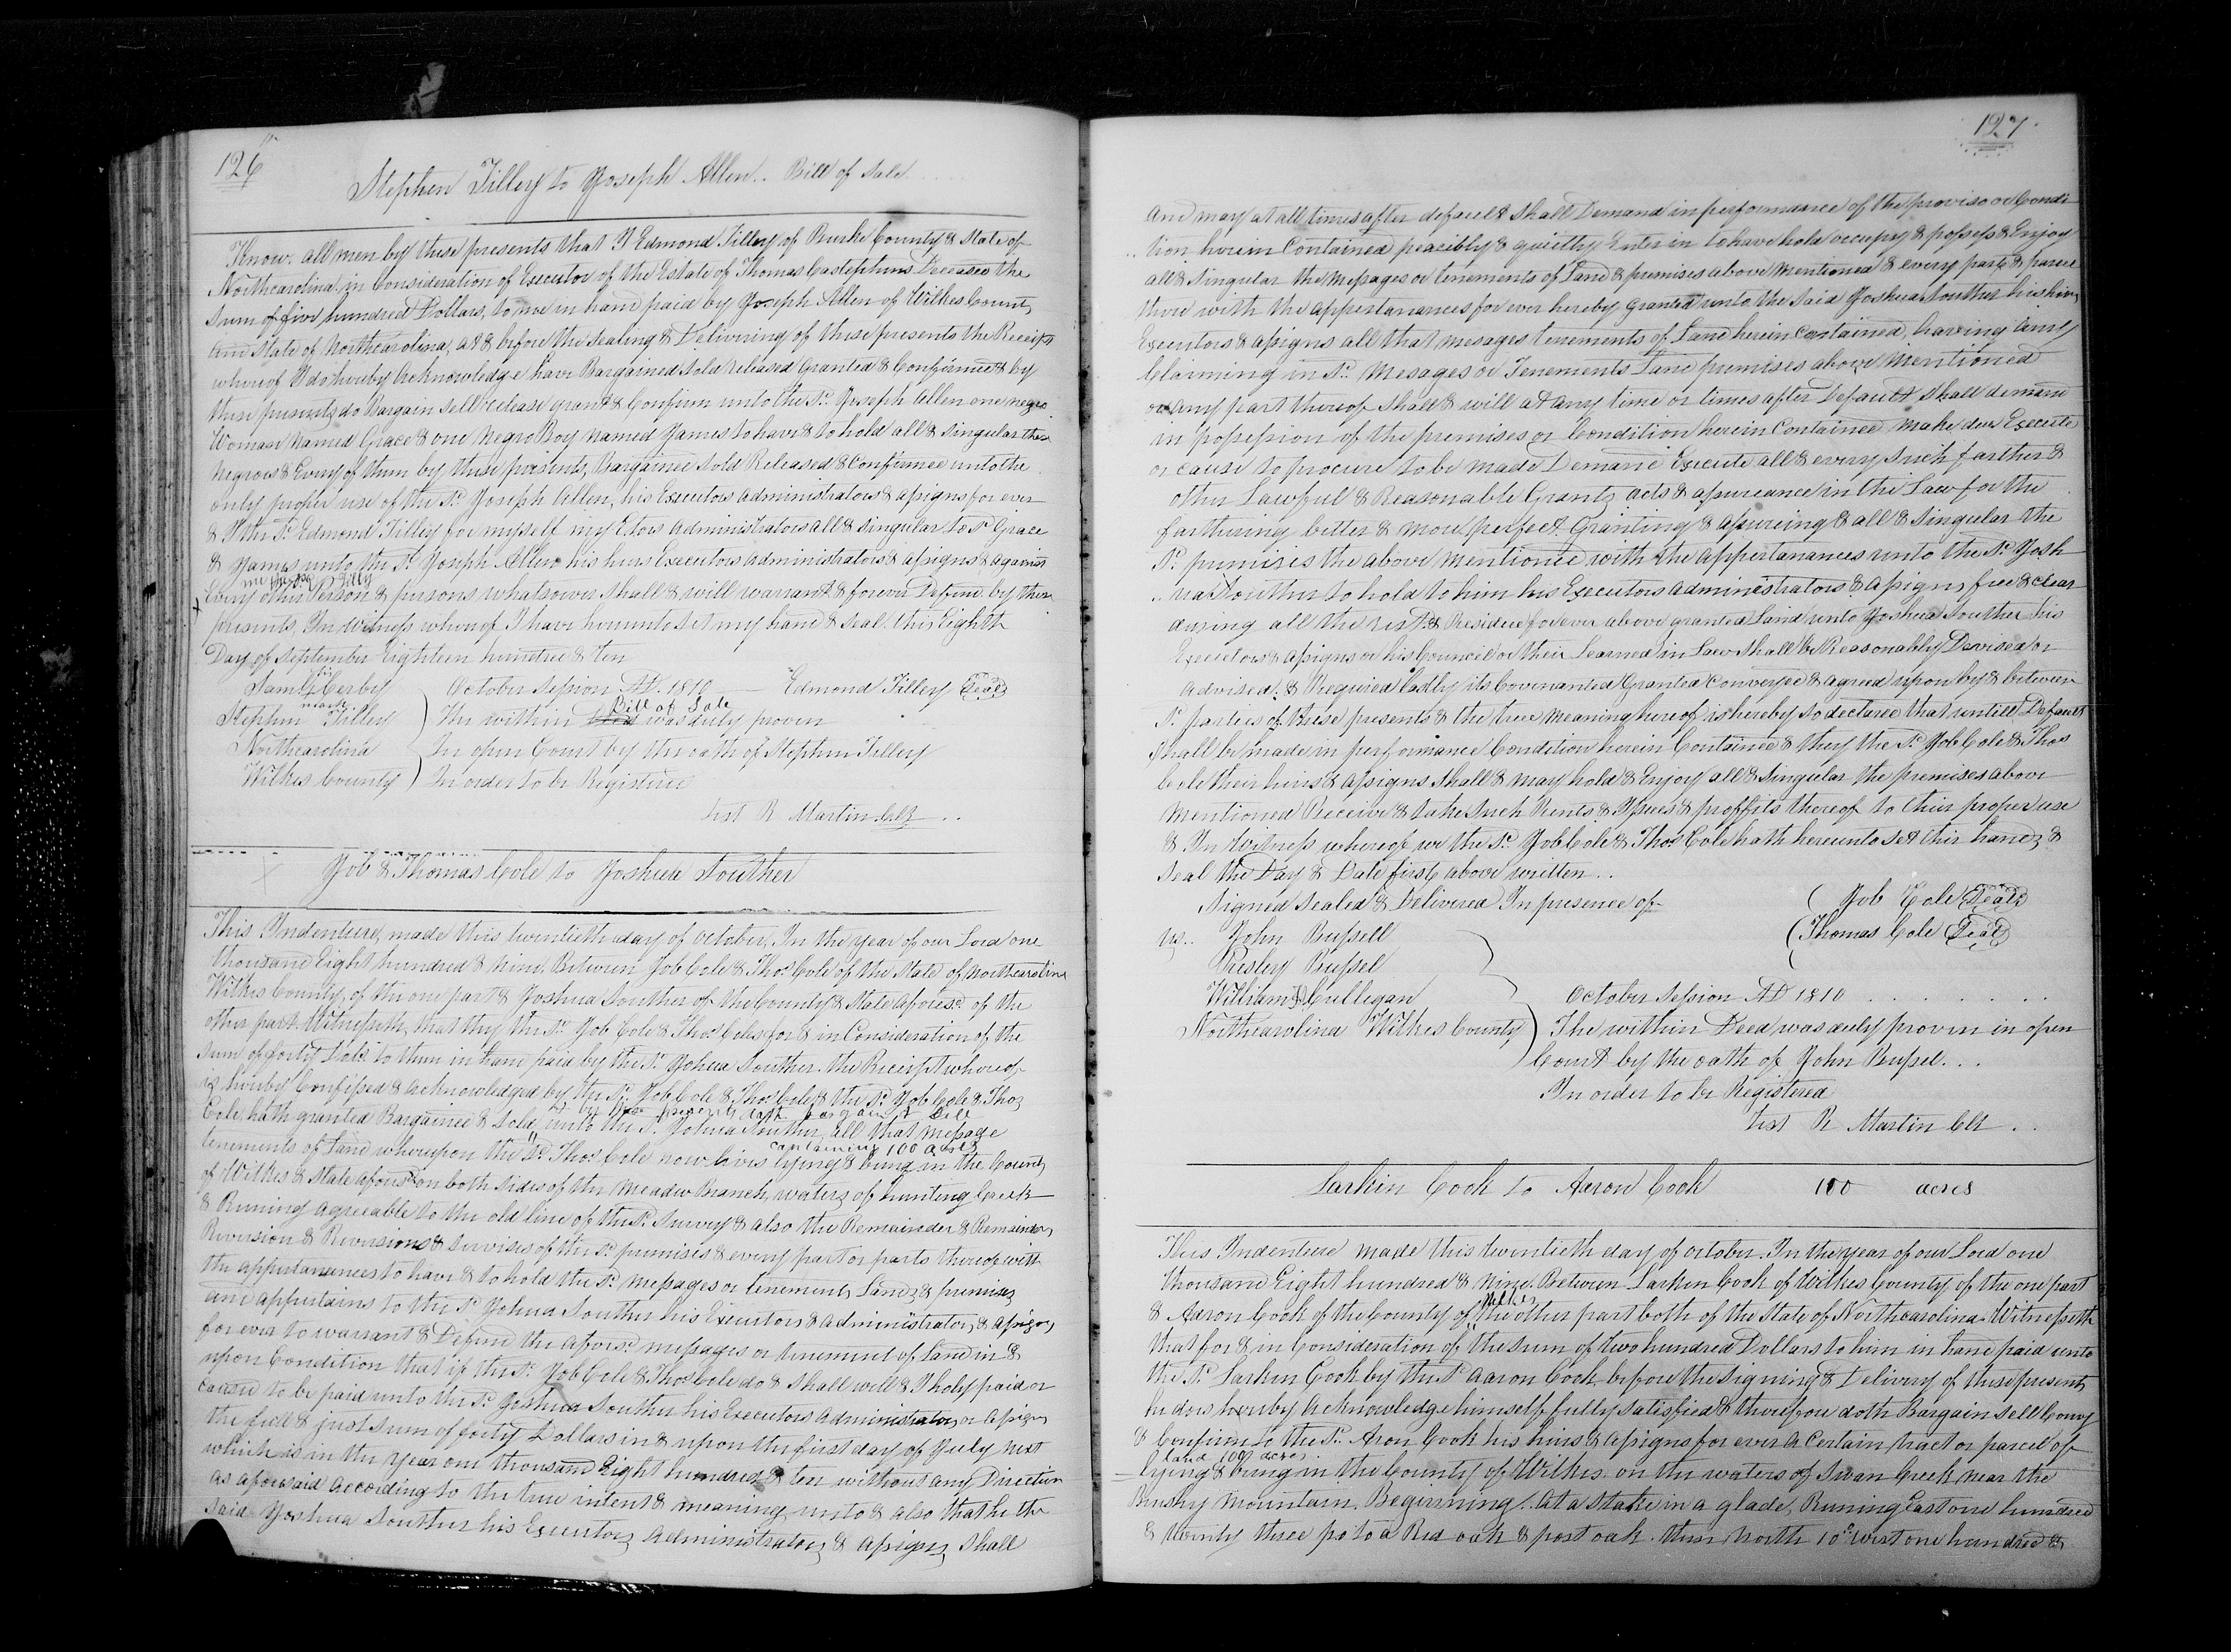 126
Stephen Tilley to Joseph Allen.. Bill of Sale
Know. all men by these presents that I Edmond Tilley of Burke County & State of
Northcarolina in Consideration of Executor of the Estate of Thomas Castephens Deceased the
Sum of five hundred Dollars, to me in hand paid by Joseph Allen of Wilkes County
and State of Northcarolina, at & before the Sealing & Delivering of these presents the Receipt
whereof I do, hereby Acknowledge have Bargained Sold released Granted & Confirmed & by
these presents do Bargain Sell release grant & Confirm unto the Sd. Joseph Allen one negro
Woman Named Grace & one Negro Boy named James to have & to hold all & Singular these
Negroes & Every of them by these presents, Bargained Sold Released & Confirmed unto the
only proper use of the Sd. Joseph Allen, his Executors Administrators & assigns for ever
& I the Sd. Edmond Tilley for myself my Extors Administrators all & Singular to Sd Grace
& James unto the Sd. Joseph Allen his heirs Executors Administrators & assigns & against
me the Sd. Tilly
Every other Person & persons whatsoever Shall & will warrant & forever Defend by these
presents, In Witness whereof I have hereunto Set my hand & Seal. this Eighth
Day of September Eighteen hundred & Ten
his
Saml + Cerby October Session AD. 1810 — Edmond Tilley (Seal)
mark Bill of Sale
Stephen Tilley The within was duly proven
Northcarolina In open Court by the oath of Stephen Tilley
Wilkes County In order to be Registered
Test R Martin Clk ..
Job & Thomas Cole to Joshua Souther
This Indenture, made this twentieth day of october, In the year of our Lord one
thousand Eight hundred & Nine. Between Job Cole & Thos Cole of the State of Northcarolina
Wilkes County, of the one part & Joshua Souther of the County & State aforesd. of the
other part. Witnesseth, that they the Sd. Job Cole & Thos. Coles for & in Consideration of the
Sum of forty Dols. to them in hand paid by the Sd. Joshua Souther. the Receipt whereof
is hereby Confessed & Acknowledged by the Sd. Job Cole & Thos Cole & the Sd. Job Cole & Thos
& by these presents doth bargain & Sell
Cole hath granted Bargained & Sold, unto the Sd. Joshua Souther, all that Message
containing 100 acres
tenements of Land whereupon the Sd. Thos. Cole now lives lying & being in the County
of Wilkes & State aforesd. on both Sides of the Meadow Branch, waters of hunting Creek
& Runing agreeable to the old line of the Sd. Survey & also the Remainder & Remainders
Reversion & Reversions & Servises of the Sd. premises & every part or parts thereof with
the appurtanances to have & to hold the Sd. Messages or tenements, Lands & premises
and appertains to the Sd Joshua Souther his Executors & Administrators, & assigns
for ever to warrant & Defend the aforesd. messages or tenement of Land in &
upon Condition that if the Sd. Job Cole & Thos Cole do & Shall will & Tholy paid or
caused to be paid unto the Sd. Joshua Souther his Executors Administrators or Assigns
the full & just Sum of forty Dollars in & upon the first day of July next
which is in the year one thousand Eight hundred & ten without any Direction
as aforesaid according to the true intent & meaning unto & also that he the
Said Joshua Souther his Executors Administrators & assigns, Shall
127
and may at all times after default Shall Demand in performance of the proviso or Condi
tion herein Contained peacibly & quietly Enter in to have hold occupy & possess & Enjoy
all & Singular the Messages or tenements of Land & premises above mentioned & every part & parcel
there with the appertanances for ever hereby granted unto the Said Joshua Souther his heirs
Executors & assigns all that mesages tenements of Land herein Contained, having
Claiming in Sd. Mesages or Tenements Land premises above Mentioned
or any part thereof Shall & will at any time or times after Default Shall demand
in possession of the premises or Condition herein Contained make done Execute
or cause to procure to be made Demand Execute all & every Such farther &
other Lawful & Reasonable Grants, acts & assureance in the Law for the
farthering better & more perfect Granting & assureing & all & Singular the
Sd. premises the above Mentioned with the appertanances unto the Sd. Josh
ua Souther to hold to him his Executors administrators & assigns, free & clear
during all the rest & Residue for ever above granted Land unto Joshua Souther his
Executors & assigns or his Council or their Learned in Law Shall be Reasonably Devised or
advised. & Required lastly its Covenanted Granted Converyed & agreed upon by & between
Sd. parties of these presents & the true meaning hereof is hereby so declared that untill Default
Shall be made in performance Condition herein Contained & they the Sd. Job Cole & Thos
Cole their heirs & assigns Shall & may hold & Enjoy all & Singular the premises above
Mentioned Receive & take Such Rents & Issues & proffits thereof to their proper use
& In Witness whereof we the Sd. Job Cole & Thos. Cole hath hereunto Set their hands &
Seal the Day & Date first above written..
Signed Sealed & Delivered In presence of Job Cole (Seal)
John Russell Thomas Cole (Seal)
Presley Russel
William Culligan October Session AD 1810
Northcarolina Wilkes County The within Deed was duly proven in open
Court by the oath of John Russel...
In order to be Registered
Test R Martin Clk ..
Larkin Cook to Aaron Cook 100 acres
This Indenture made this twentieth day of october. In the year of our Lord one
thousand Eight hundred & nine. Between Larken Cook of Wilkes County of the one part
Wilkes
& Aaron Cook of the County of the other part both of the State of Northcarolina. Witnesseth
that for & in Consideration of the Sum of two hundred Dollars to him in hand paid unto
the Sd. Larken Cook by the Sd Aaron Cook before the Signing & Delivery of these presents
he does hereby Acknowledge himself fully Satisfied & therefore doth Bargain Sell Convey
& Confirm to the Sd. Aron Cook his heirs & assigns for ever a Certain tract or parcel of
land 100 acres.
lying & being in the County of Wilkes. on the waters of Swan Creek near the
Brushy Mountain. Beginning. At a Stake in a glade, Runing East one hundred
& twenty three po to a Red oak & post oak. then North 10° west one hundred &